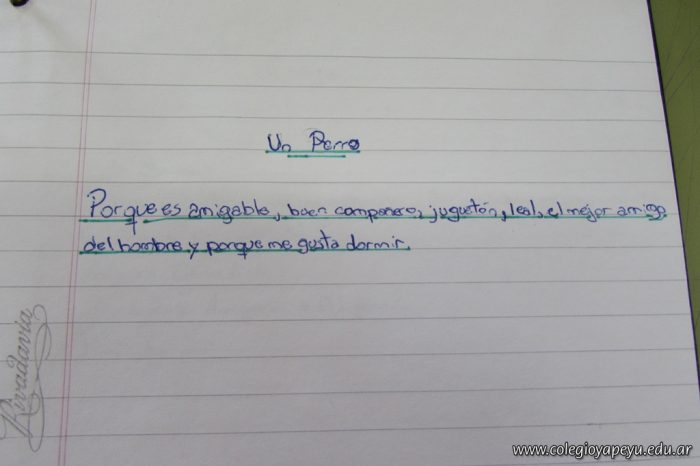 Un Perro
Porque es amigable, buen compañero, juguetón, leal, el mejor amigo
del hombre y porque me gusta dormir.
Rivadavia
www.colegioyapeyu.edu.ar